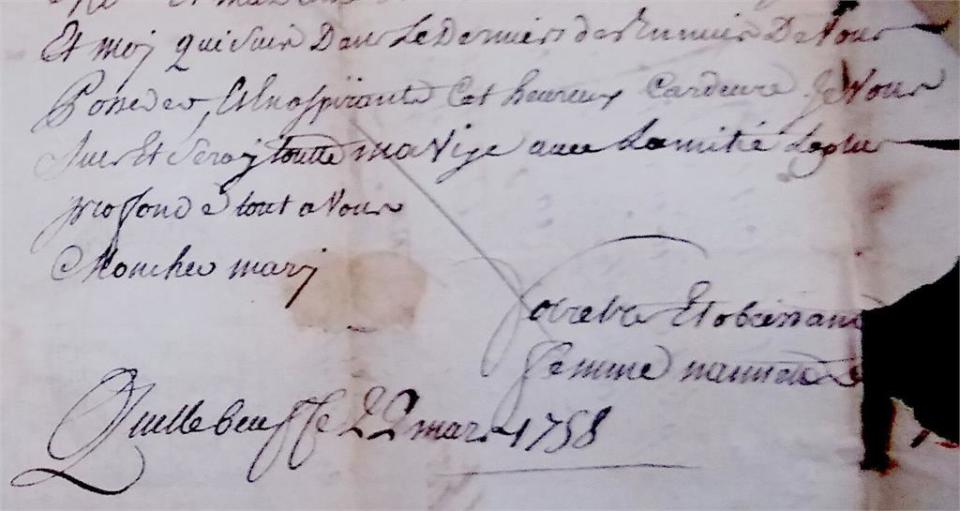 Et moj qui suis Dans Le Dernier des Ennuis De Vous
Posseder, Et En aspirante Cet heureux je Vous
suis Et Seraj toutte ma Vije avec Lamitié La plus
profonde tout a Vous
Moncher marj
Votre Et obeissante
femme nannette
Quillebeuffe 22 mars 1758